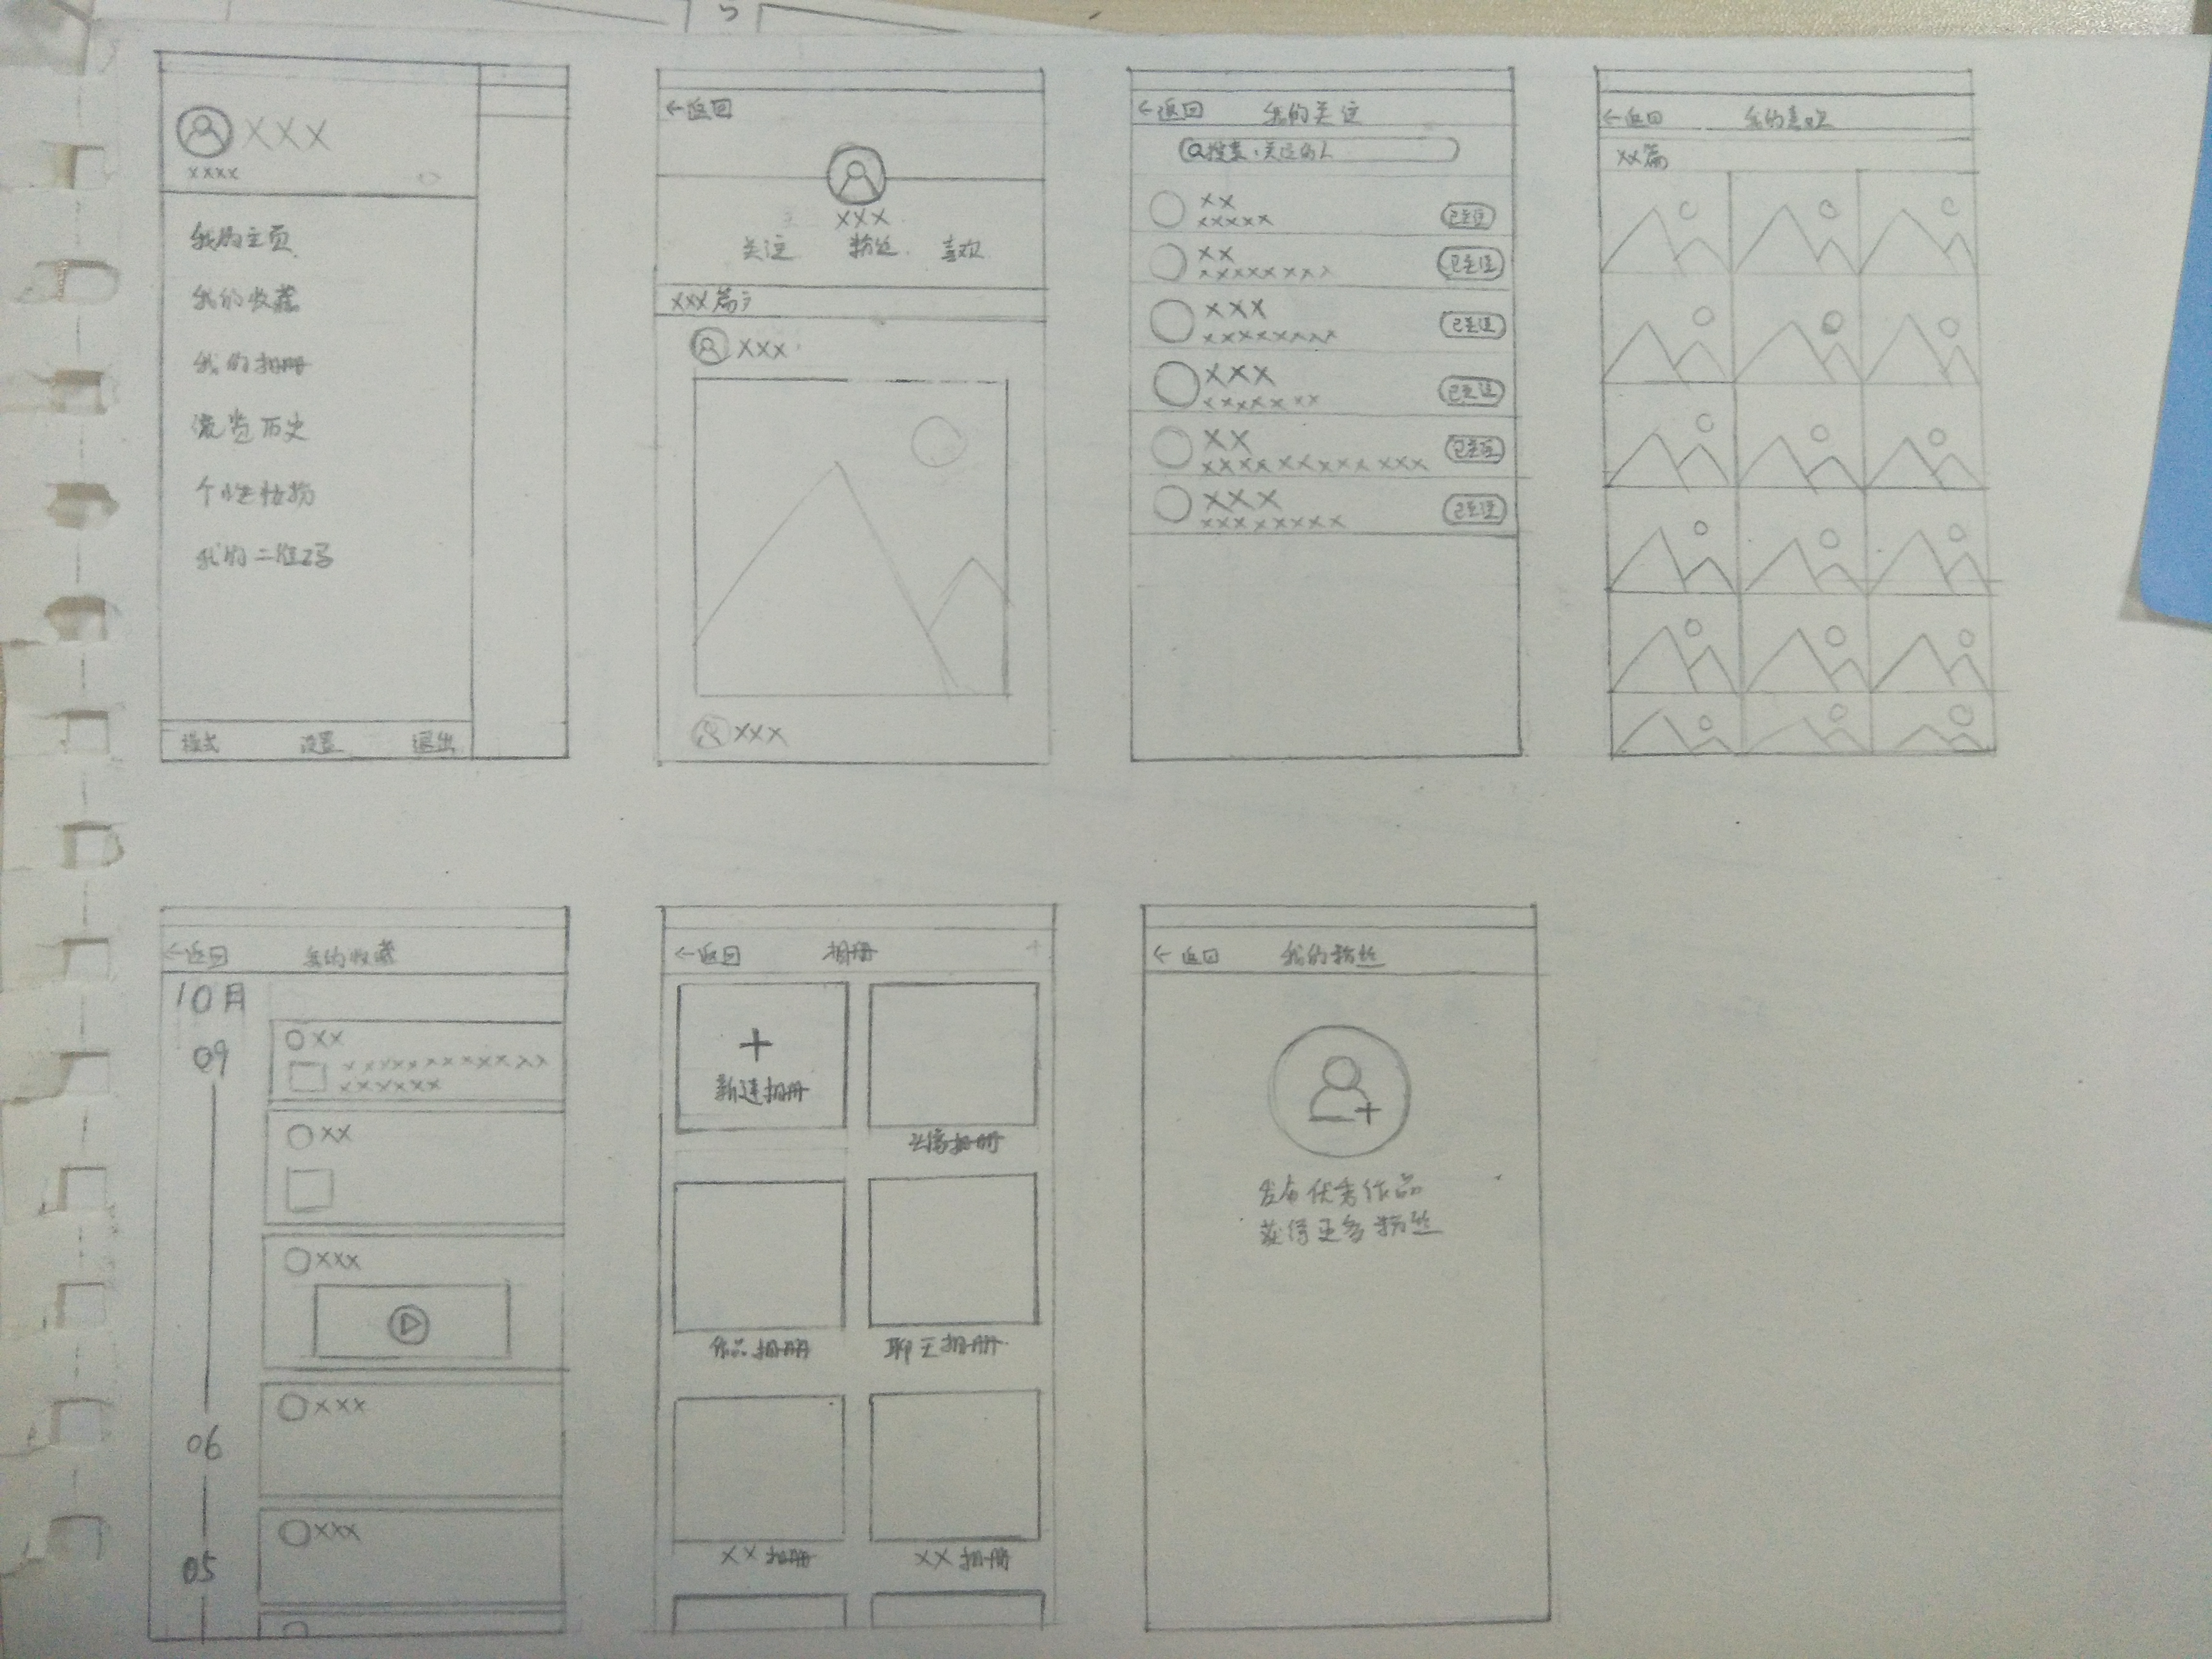 XXX
xxxx
我的主页
我的收藏
我的相册
浏览历史
个性装扮
我的二维码
模式 设置 退出
←返回
XXX
关注 粉丝 喜欢
XXX篇
XXX
XXX
←返回 我的关注
搜索:关注的人
XX
xxxxx 已关注
XX
xxxxxxxx 已关注
XXX
xxxxxxxx 已关注
XXX
xxxxxxx 已关注
XX
xxxxxxxxxxxx 已关注
XXX
xxxxxxxx 已关注
←返回 我的喜欢
XX篇
←返回 我的收藏
10月
09
XX
xxxxxxxxxxxx
xxxxxx
XX
XXX
06
XXX
05
XXX
←返回 相册 +
+
新建相册
头像相册
作品相册 聊天相册
XX相册 XX相册
←返回 我的粉丝
发布优秀作品
获得更多粉丝